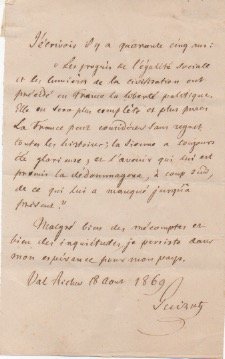 J'écrivais il y a quarante cinq ans :
"Les progrès de l'égalité sociale
et les lumières de la civilisation ont
précédé en France la liberté politique.
Elle en sera plus complète et plus pure.
La France peut considérer sans regret
toutes les histoires ; la sienne a toujours
été glorieuse ; et l'avenir qui lui est
promis la dédommagera, à coup sûr,
de ce qui lui a manqué jusqu'à
présent."
Malgré bien des mécomptes et
bien des inquiétudes, je persiste dans
mon espérance pour mon pays.
Val Richer 18 Août 1869
Guizot